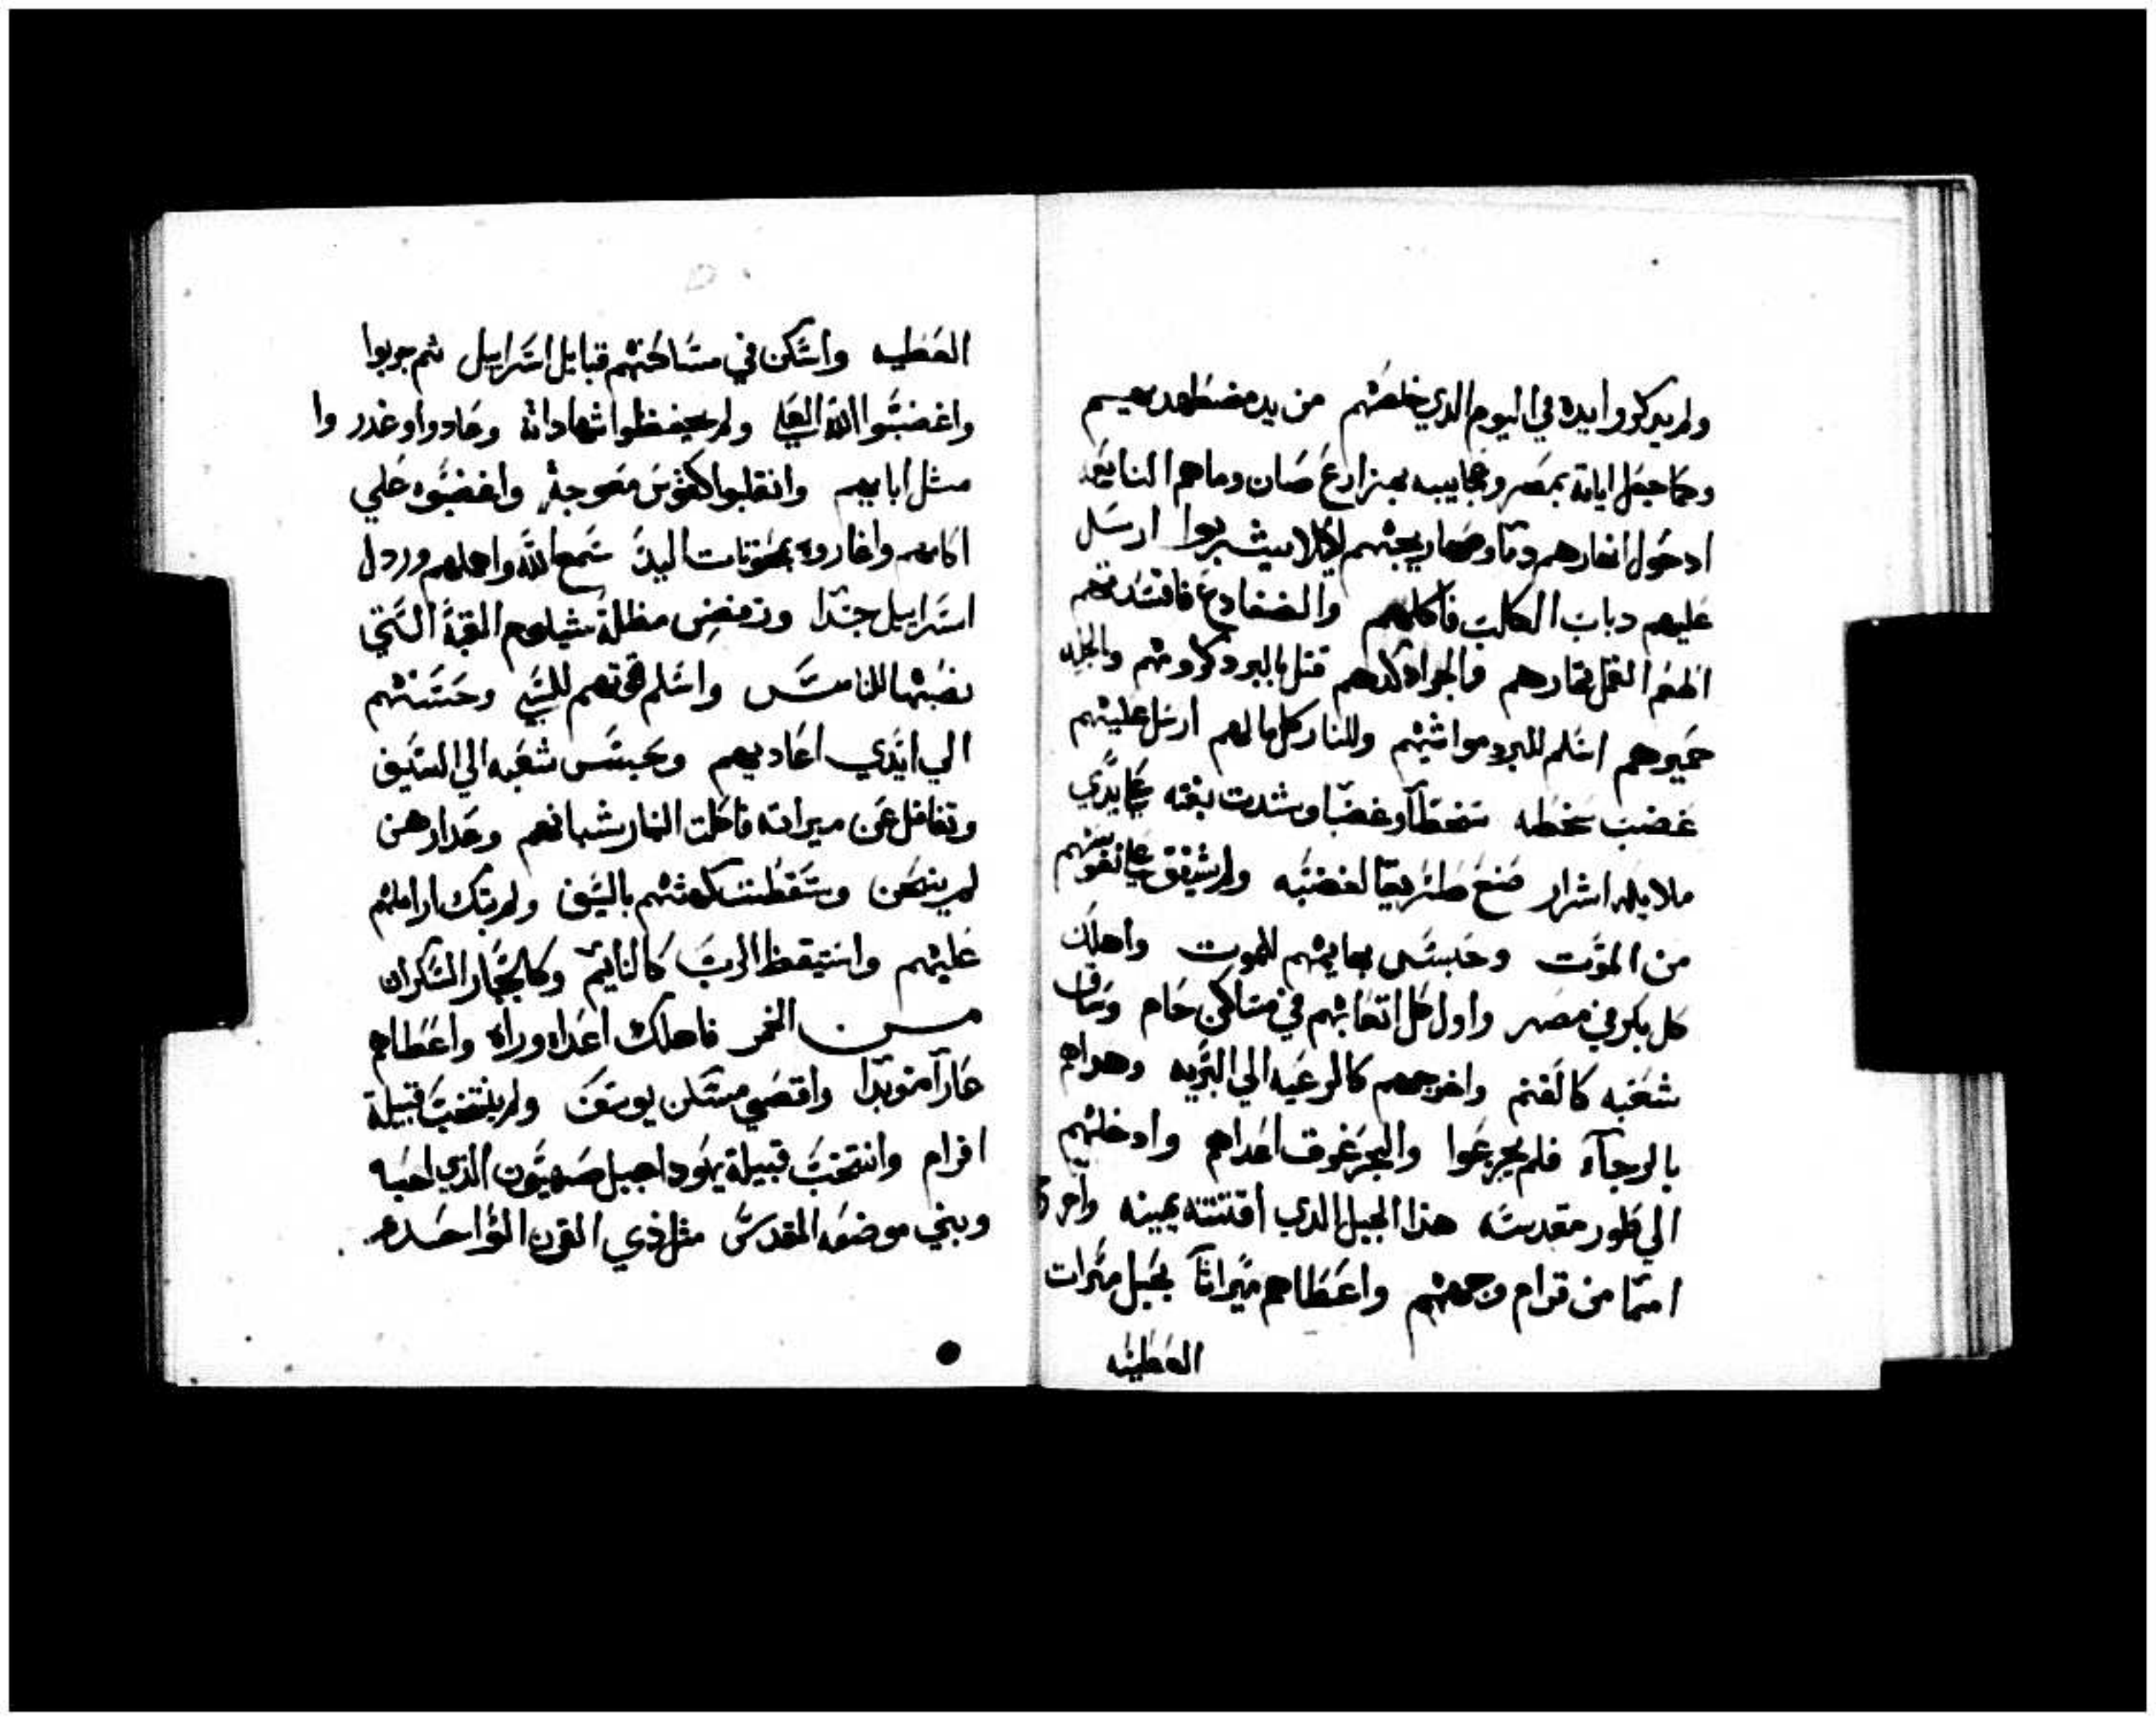 ولم يدكروا يده في اليوم الدي خلصهم من يد مضطهديهم
وكما جعل اياته بمصر وعجايبه بمزارع صان وماهم النابعه
ادحول انهارهم دمآ وصهاريجهم لكيلا يشربوا ارسل
عليهم دباب الكلب فأكلهم والضفادع فافسدتهم
اطعم القمل ثمارهم والجراد كدهم قتل بالبرد كرومهم وبالجليد
حميرهم اسلم للبرد مواشيهم وللنار كل مالهم ارسل عليهم
غضب سخطه سخطآ وغضبا وشدت بعثه علي ايدي
ملايكه اشرار صنع طريقا لغضبه ولم يشفق علي نفوسهم
من الموت وحبس بهايمهم للموت واهلك
كل بكر في مصر واول كل اتعابهم في مساكن حام وساق
شعبه كالغنم واخرجهم كالرعيه الي البريه وهداهم
بالرجآء فلم يجزعوا والبحر غرق اعداهم وادخلهم
الي طور مقدسه هذا الجبل الدي اقتنته يمينه واخرج
امما من قدام وجههم واعطاهم ميراثآ بحبل ميرات
العطيه
العطيه واسكن في مساكنهم قبايل اسراييل ثم جربوا
واغضبوا الله العلي ولم يحفظوا شهاداته وحادوا وغدروا
مثل ابايهم وانقلبوا كقوس معوجة واغضبوه علي
اكامهم واغاروه بمنحوتات اليد سمع الله واهملهم ورذل
اسراييل جدا ورفض مظلة شيلوم القبة التي
نصبها للناس واسلم قوتهم للسبي وحسنهم
الي ايدي اعاديهم وحبس شعبه الي السيف
وتغافل عن ميراته فاكلت النار شبانهم وعدارهن
لم ينحن وسقطت كهنتهم بالسيف ولم تبك اراملهم
عليهم واستيقظ الرب كالنايم وكالجبار السكران
من الخمر فاهلك اعداه وراه واعطاهم
عارآ موبدا واقصي مسكن يوسف ولم ينتخب قبيلة
افرام وانتخب قبيلة يهودا جبل صهيون الدي احبه
وبني موضعه المقدس مثل ذي القرن الواحد